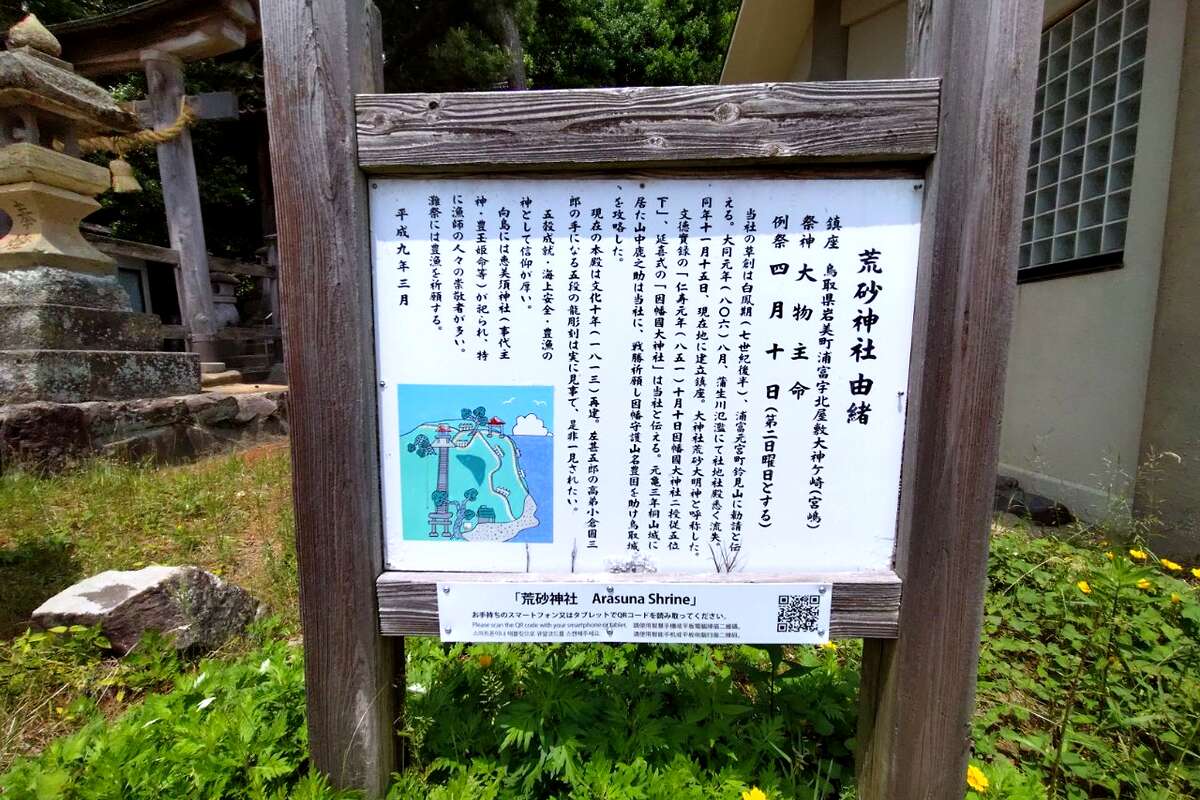 荒砂神社由緒
鎮座　鳥取県岩美町浦富字北屋敷大神ケ崎(宮嶋)
祭神　大物主命
例祭　四月十日(第二日曜日とする)
当社の草創は白鳳期(七世紀後半)、浦富元宮町鈴見山に勧請と伝
える。大同元年(八〇六)八月、蒲生川氾濫にて社地社殿悉く流失、
同年十一月十五日、現在地に建立鎮座。大神社荒砂大明神と呼称した。
文徳實録の「仁寿元年(八五一)十月十日因幡國大神社ニ授従五位
下」、延喜式の「因幡國大神社」は当社と伝える。元亀三年桐山城に
居た山中鹿之助は当社に、戦勝祈願し因幡守護山名豊国を助け鳥取城
を攻略した。
現在の本殿は文化十年(一八一三)再建。左甚五郎の高弟小倉園三
郎の手になる五段の龍彫刻は実に見事で、是非一見されたい。
五穀成就・海上安全・豊漁の
神として信仰が厚い。
向島には恵美須神社(事代主
神・豊玉姫命等)が祀られ、特
に漁師の人々の崇敬者が多い。
灘祭には豊漁を祈願する。
平成九年三月
「荒砂神社　Arasuna Shrine」
お手持ちのスマートフォン又はタブレットでQRコードを読み取ってください。
Please scan the QR code with your smartphone or tablet.　請使用智慧手機或平板電腦掃描二維碼。
스마트폰이나 태블릿으로 QR코드를 스캔해주세요　请使用智能手机或平板电脑扫描二维码。